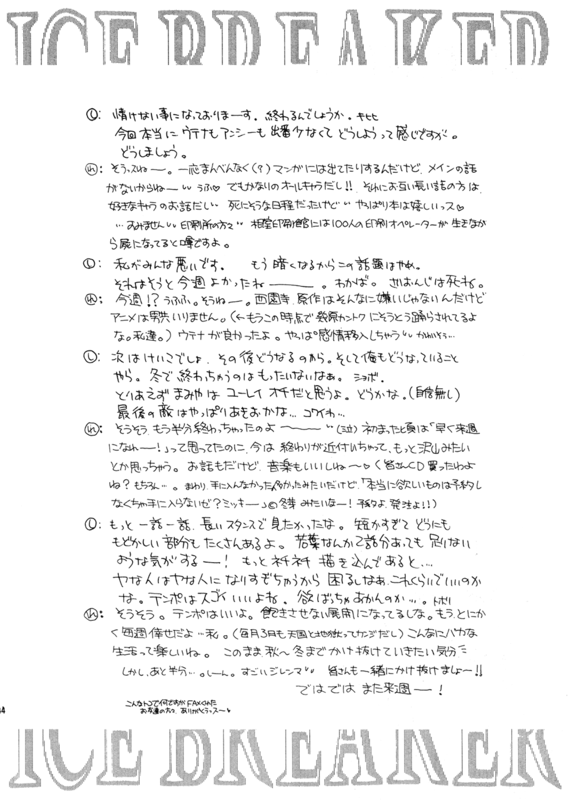 ICE BREAKER
し: 情けない事になっておりまーす。終わるんでしょうか。キヒヒ
今回本当にウテナもアンシーも出番少なくてどうしようって感じですが。
どうしましょう。
れ: そうっスねー。一応まんべんなく(?)マンガには出てたりするんだけど、メインの話
がないからねー うふ♡ でもかなりのオールキャラだし!! それにお互い長い話の方は、
好きなキャラのお話だし 死にそうな日程だったけど やっぱり本は嬉しいっス♡
…すみません 印刷所の方々 地下印刷館には100人の印刷オペレーターが生きなが
ら屍になってると噂ですよ。
し: 私がみんな悪いです。 もう暗くなるからこの話題はやめ。
それはそうと今週よかったねー。わかば。さいおんじは死ね。
れ: 今週!?うふふ。そうねー。西園寺 原作はそんなに嫌いじゃないんだけど
アニメは男共いりません。(←もうこの時点で幾原カントクにそうとう踊らされてるよ
な。私達。)ウテナが良かったよ。やっぱ感情移入しちゃう かわいそう…
し: 次はけいこでしょ、その後どうなるのやら。そして俺もどうなっていること
やら。冬で終わっちゃうのはもったいないなぁ。ショボ。
とりあえずまみやはユーレイオチだと思うよ。どうかな。(自信無し)
最後の敵はやっぱりあきおかな… コワイわ…
れ: そうそう、もう半分終わっちゃったのよ〜 (泣)初まった頃は「早く来週
になれー!」って思ってたのに、今は終わりが近付いちゃって、もっと沢山みたい
とか思っちゃう。お話もだけど、音楽もいいしね〜♡(皆さんCD買ったわよ
ね?もちろん…。まわり、手に入んなかった人多かったみたいだけど、「本当に欲しいものは予約し
なくちゃ手に入らないゼ?ミッキー」©冬芽 みたいなー!予約よ、発注よ!!)
し: もっと一話一話、長いスタンスで見たかったな。短かすぎてどうにも
もどかしい部分もたくさんあるよ。若葉なんか2話分あっても足りない
ような気がするー!もっとネチネチ描き込んであると…
ヤな人はヤな人になりすぎちゃうから困るしなあ、これくらいでいいのか
な。テンポはスゴくいいよね。欲ばっちゃあかんのか…。トホリ
れ: そうそう。テンポはいいよ。飽きさせない展開になってるしな。もうとにか
く毎週倖せだよ…私。(毎月3日も天国と地獄ってカンジだし)こんなにバカな
生活って楽しいね。 このまま秋〜冬までかけ抜けていきたい気分
しかし、あと半分…。しーん。すごいジレンマ 皆さんも一緒にかけ抜けましょー!!
ではでは また来週ー!
こんなトコで何ですがFAXくれた
お友達の方々 ありがとうっスー
ICE BREAKER